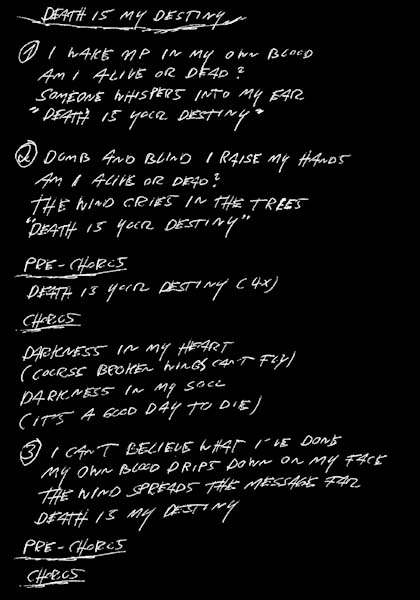 DEATH IS MY DESTINY
1 I WAKE UP IN MY OWN BLOOD
AM I ALIVE OR DEAD?
SOMEONE WHISPERS INTO MY EAR
"DEATH IS YOUR DESTINY"
2 DUMB AND BLIND I RAISE MY HANDS
AM I ALIVE OR DEAD?
THE WIND CRIES IN THE TREES
"DEATH IS YOUR DESTINY"
PRE-CHORUS
DEATH IS YOUR DESTINY (4X)
CHORUS
DARKNESS IN MY HEART
(COURSE BROKEN WINGS CAN'T FLY)
DARKNESS IN MY SOUL
(IT'S A GOOD DAY TO DIE)
3 I CAN'T BELIEVE WHAT I'VE DONE
MY OWN BLOOD DRIPS DOWN ON MY FACE
THE WIND SPREADS THE MESSAGE FAR
DEATH IS MY DESTINY
PRE-CHORUS
CHORUS